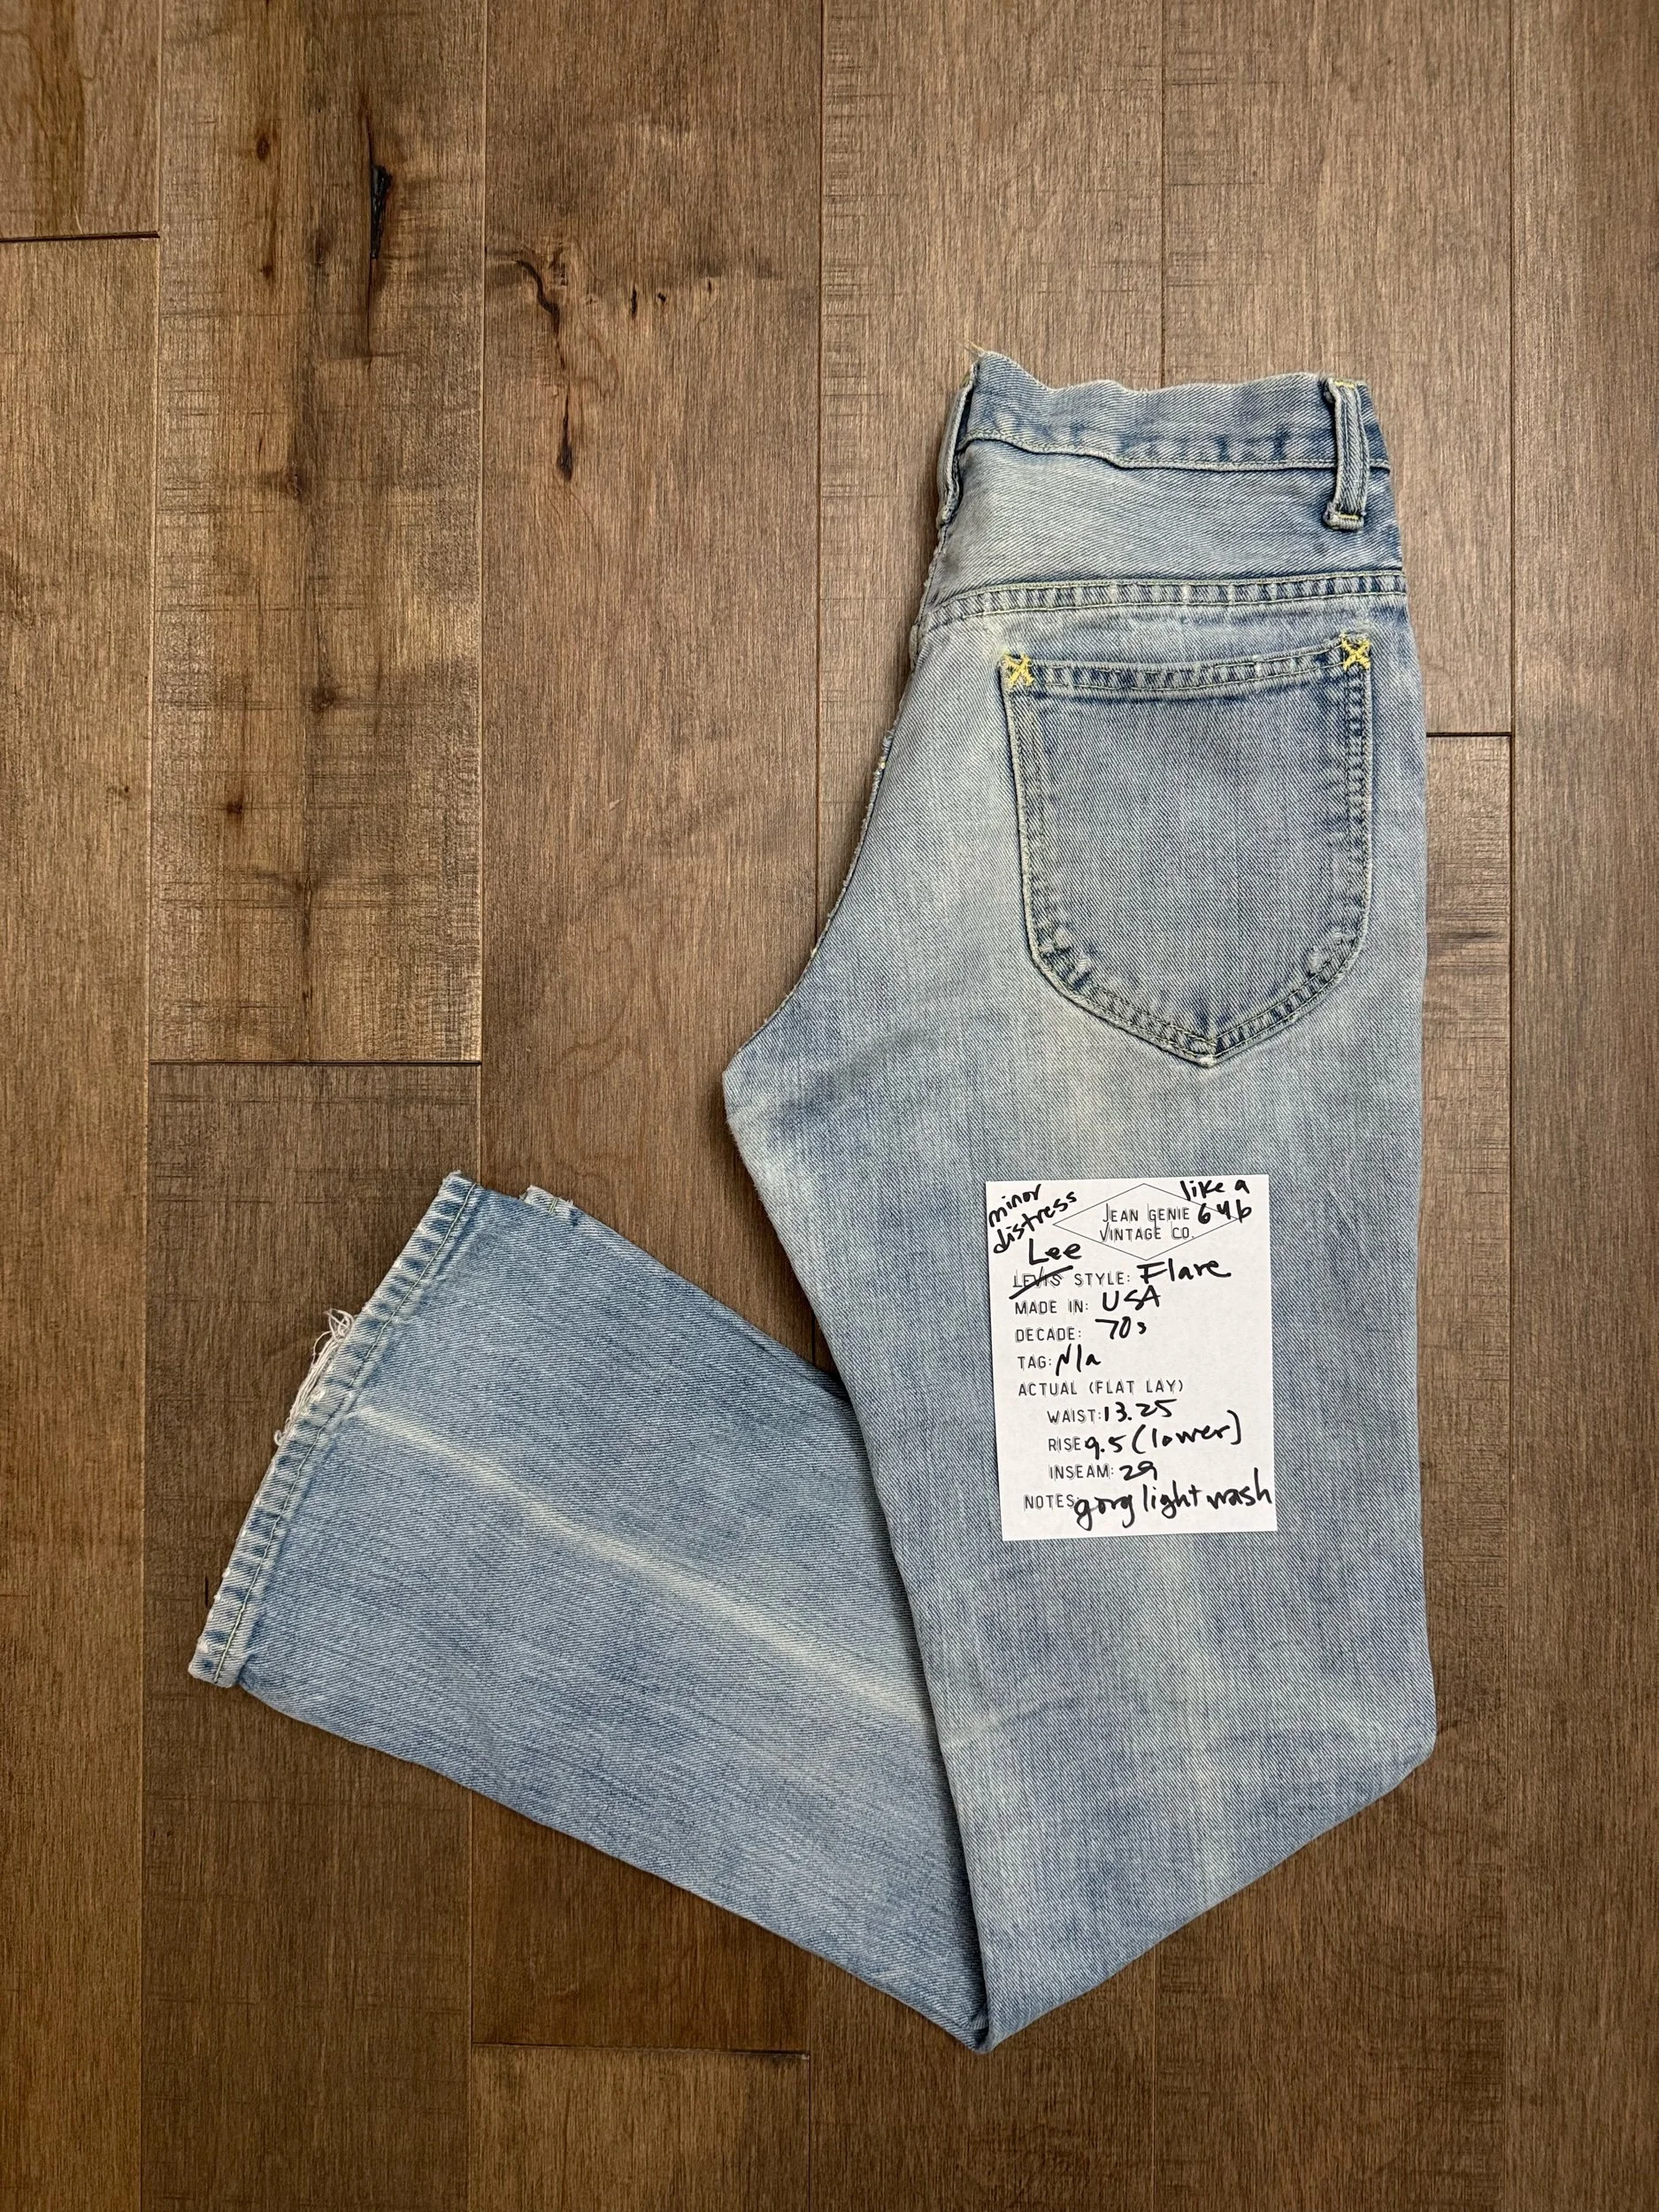 minor
distress
like a
646
JEAN GENIE
VINTAGE CO.
Lee
LEVIS STYLE: Flare
MADE IN: USA
DECADE: 70s
TAG: N/a
ACTUAL (FLAT LAY)
WAIST: 13.25
RISE 9.5 (lower)
INSEAM: 29
NOTES: gorg light wash